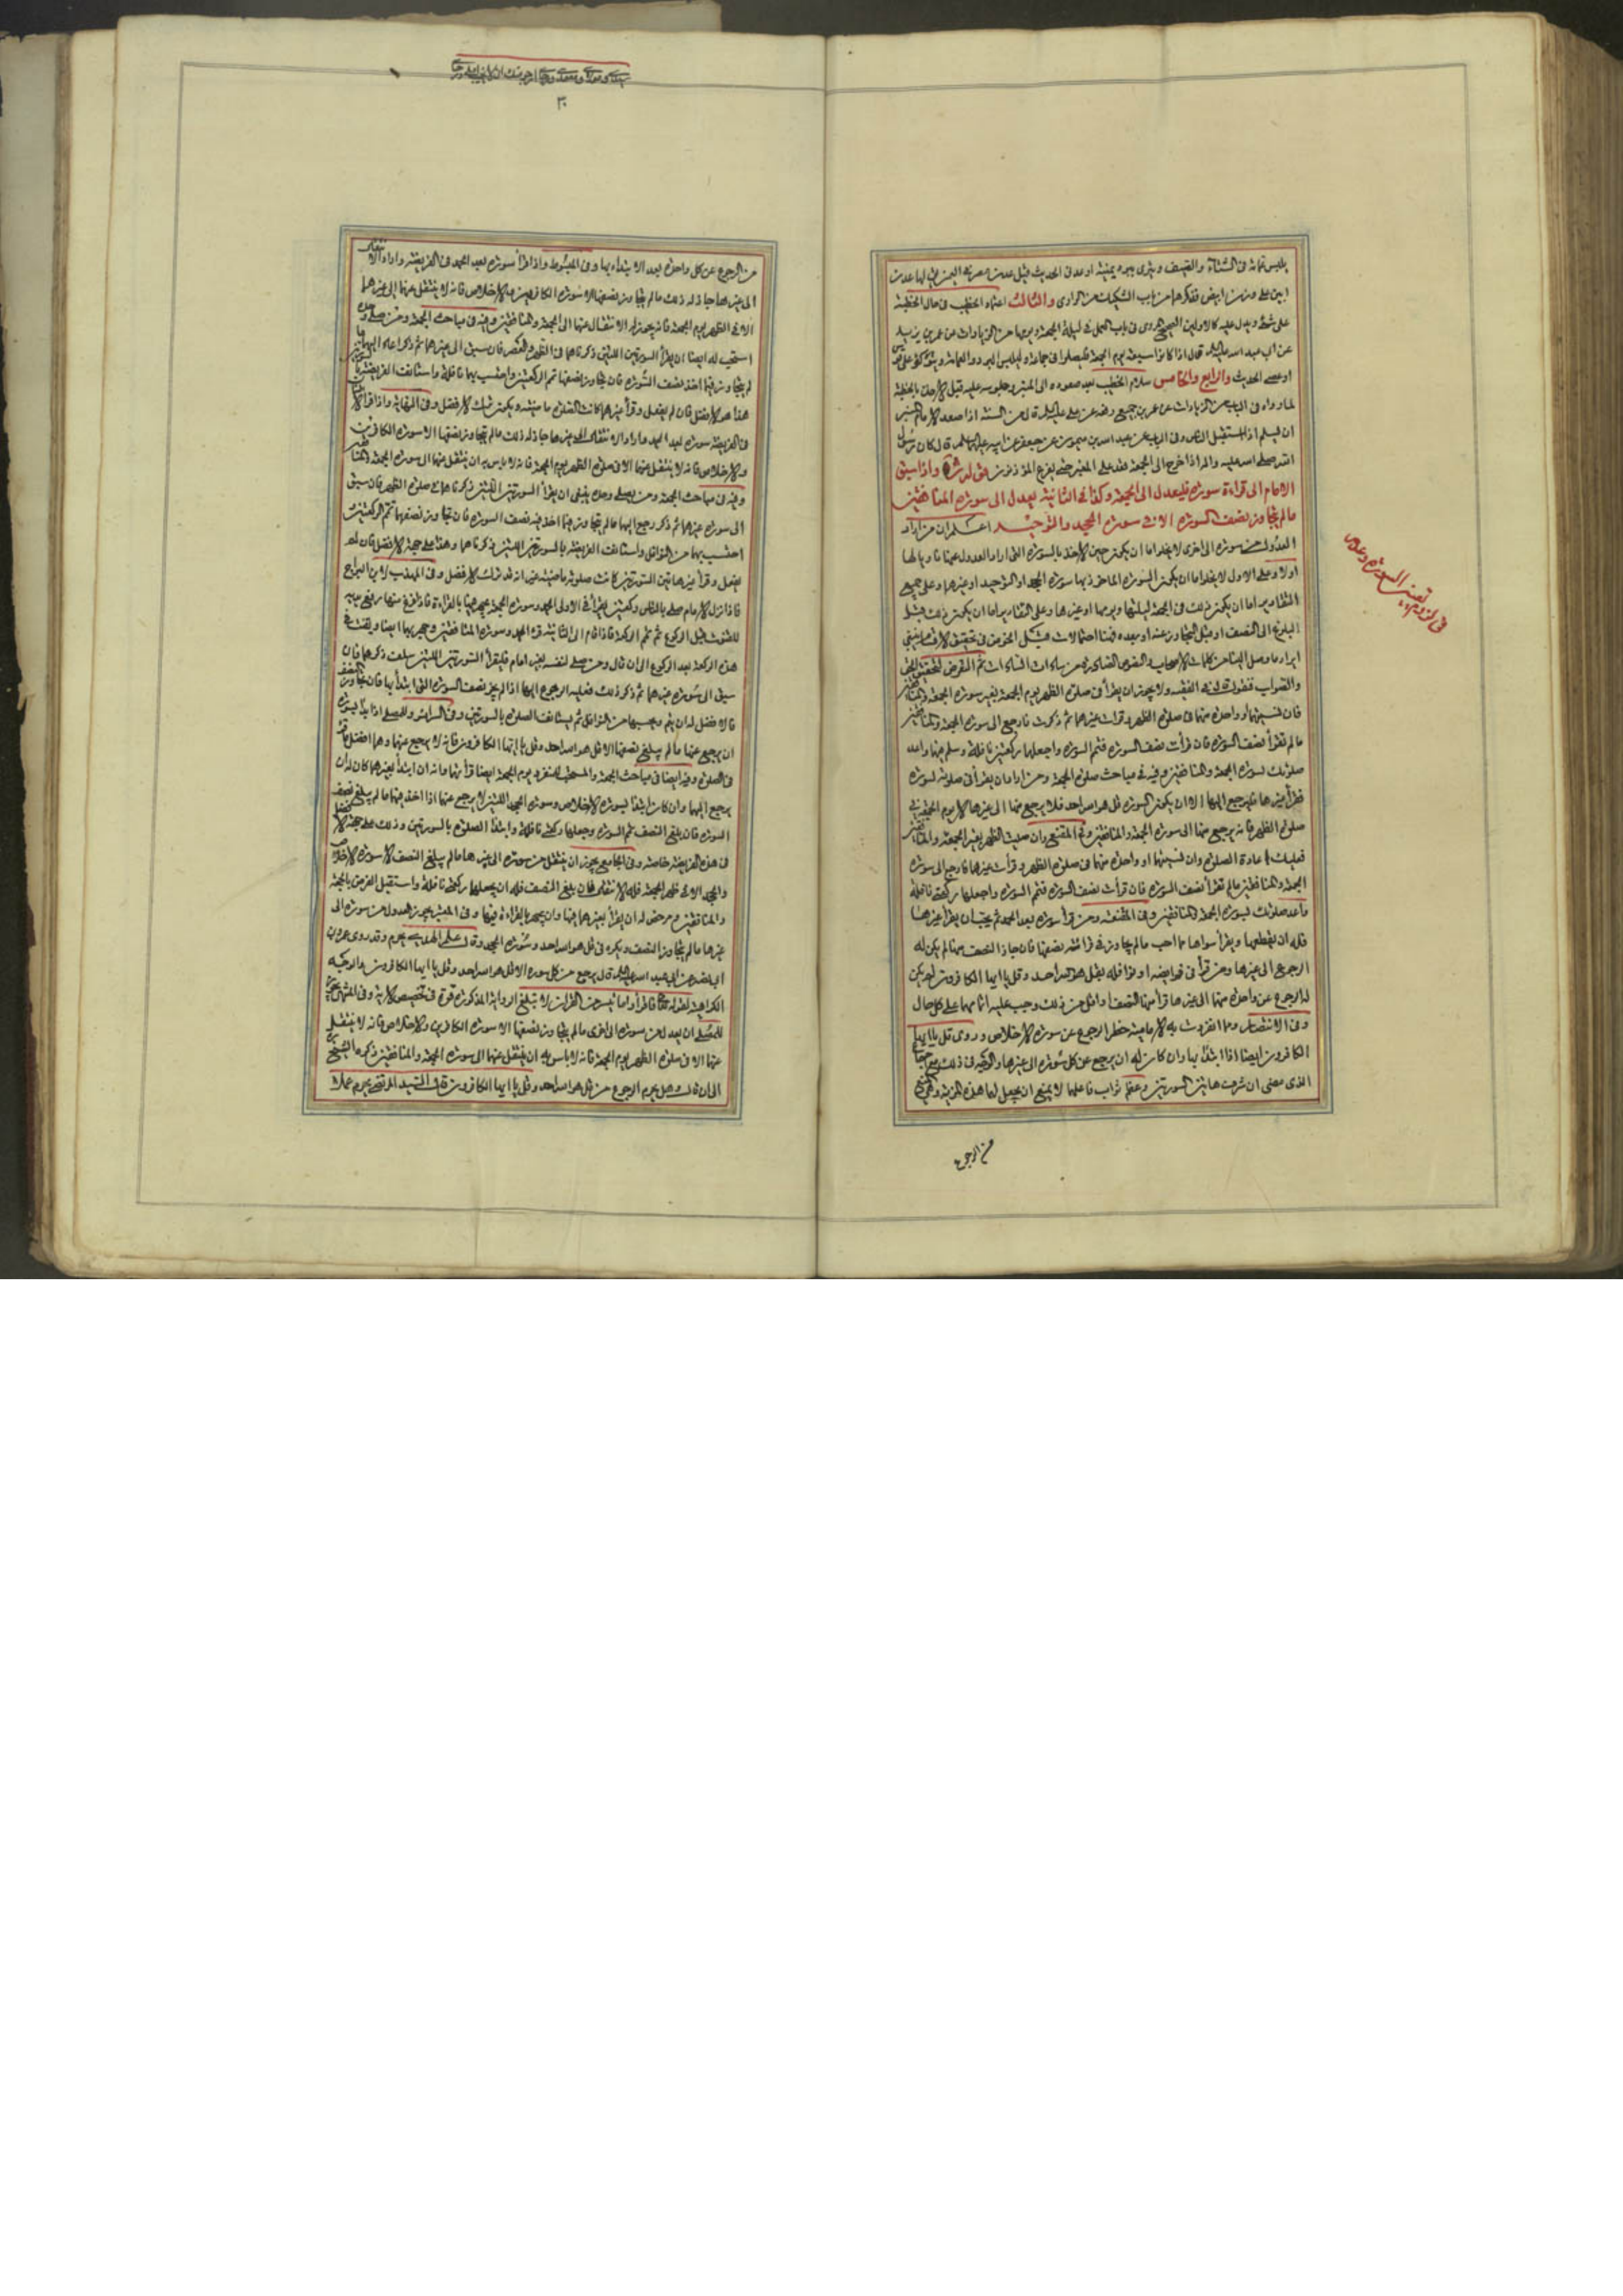 يلبس عمامة في الشتاء والصيف ويتردى ببرد يمنية او عدني الحديث قيل عدن
ابين على وزن ابيض فقد كرهها من باب الشكيات من الراوي والثالث اعتماد الخطيب في حال الخطبة
على شئ ويدل عليه كالاولين الصحيح المروي في باب العمل في ليلة الجمعة ويومها من الزيادات عن عمر بن يزيد
عن ابي عبد الله عليه السلام قال اذا كانوا سبعة يوم الجمعة فليصلوا في جماعة وليلبس البرد والعمامة ويتوكأ على قوس
او عصى الحديث والرابع والخامس سلام الخطيب بعد صعوده الى المنبر وجلوسه عليه قبل الاخذ بالخطبة
لما رواه في الباب من الزيادات عن عمرو بن جميع رفعه عن علي عليه السلام قال من السنة اذا صعد الامام المنبر
ان يسلم اذا استقبل الناس وفي الباب عن عبد الله بن ميمون عن جعفر عن ابيه عليهما السلام قال كان رسول
الله صلى الله عليه واله اذا خرج الى الجمعة قعد على المنبر حتى يفرغ المؤذنون قوله واذا سبق
الامام الى قراءة سورة فليعدل الى الجمعة وكذا في الثانية يعدل الى سورة المنافقين
ما لم يتجاوز نصف السورة الا في سورة الجحد والتوحيد اعلم ان من اراد
العدول من سورة الى اخرى لا يخلو اما ان يكون حين الاخذ بالسورة التي اراد العدول عنها ناويا لها
اولا وعلى الاول لا يخلو اما ان يكون السورة الماخوذ بها سورة الجحد او التوحيد او غيرها وعلى جميع
التقادير اما ان يكون ذلك في الجمعة ليلتها ويومها او غيرها وعلى التقادير اما ان يكون ذلك قبل
البلوغ الى النصف او قبل التجاوز عنه او بعده فهنا احتمالات
ايراد ما وصل الينا من كلمات الاصحاب والنصوص الصادرة
والصواب فنقول قال في الفقيه ولا يجوز ان يقرأ في صلوة الظهر يوم الجمعة بغير سورة الجمعة والمنافقين
فان نسيتهما او واحدة منهما في صلوة الظهر وقرأت غيرهما ثم ذكرت فارجع الى سورة الجمعة والمنافقين
ما لم تقرأ نصف السورة فان قرأت نصف السورة فتمم السورة واجعلها ركعتين نافلة وسلم فيهما واعد
صلوتك بسورة الجمعة والمنافقين وفيه في مباحث صلوة الجمعة ومن اراد ان يقرأ في صلوته بسورة
فقرأ غيرها فليرجع اليها الا ان يكون السورة قل هو الله احد فلا يرجع منها الى غيرها الا يوم الجمعة في
صلوة الظهر فانه يرجع منها الى سورة الجمعة والمنافقين وفي المقنع وان صليت الظهر بغير الجمعة والمنافقين
فعليك اعادة الصلوة وان نسيتهما او واحدة منهما في صلوة الظهر وقرأت غيرها فارجع الى سورة
الجمعة والمنافقين ما لم تقرأ نصف السورة فان قرأت نصف السورة فتمم السورة واجعلها ركعتي نافلة
واعد صلوتك بسورة الجمعة والمنافقين وفي المقنعة ومن قرأ سورة بعد الحمد ثم يحب ان يقرأ غيرها
فله ان يقطعها ويقرأ سواها مما احب ما لم يجاوز في قرائته نصفها فان جاز النصف منها لم يكن له
الرجوع الى غيرها ومن قرأ في فرائضه او نوافله بقل هو الله احد وقل يا ايها الكافرون لم يكن
له الرجوع عن واحدة منهما الى غيرها قرأ منها النصف او اقل من ذلك وجب عليه اتمامها على كل حال
وفي الانتصار ومما انفردت به الامامية حظر الرجوع عن سورة الاخلاص وروى قل يا ايها
الكافرون ايضا اذا ابتدأ بها وان كان له ان يرجع عن كل سورة الى غيرها والوجه في ذلك
الذي مضى ان شرف هاتين السورتين وعظم ثواب فاعلهما لا يمتنع ان يجعل لهما هذه المزية وهي المنع
من الرجوع
في لزوم تعيين السورة وعدمه
٣٠
من الرجوع عن كل واحدة بعد الابتداء بها وفي المبسوط واذا قرأ سورة بعد الحمد في الفريضة واراد الانتقال
الى غيرها جاز له ذلك ما لم يتجاوز نصفها الا سورة الكافرين والاخلاص فانه لا ينتقل عنهما الى غيرهما
الا في الظهر يوم الجمعة فانه يجوز له الانتقال عنهما الى الجمعة والمنافقين وفيه في مباحث الجمعة ومن صلى وحده
استحب له ايضا ان يقرأ السورتين اللتين ذكرناهما في الظهر والعصر فان سبق الى غيرهما ثم ذكر اعاد اليهما ما
لم يتجاوز فيما اخذ نصف السورة فان تجاوز نصفها تمم الركعتين واحتسب بهما نافلة واستانف الفريضة بالسورتين
هذا هو الافضل فان لم يفعل وقرأ غيرهما كانت الصلوة ماضية ويكون ترك الافضل وفي النهاية واذا قرأ الانسان
في الفريضة سورة بعد الحمد واراد الانتقال الى غيرها جاز له ذلك ما لم يتجاوز نصفها الا سورة الكافرين
والاخلاص فانه لا ينتقل عنهما الا في صلوة الظهر يوم الجمعة فانه لا باس به ان ينتقل عنهما الى سورة الجمعة والمنافقين
وفيه في مباحث الجمعة ومن يصلي وحده ينبغي ان يقرأ السورتين اللتين ذكرناهما في صلوة الظهر فان سبق
الى سورة غيرهما ثم ذكر رجع اليهما ما لم يتجاوز فيما اخذ فيه نصف السورة فان تجاوز نصفها تمم الركعتين
احتسب بهما من النوافل واستانف الفريضة بالسورتين اللتين ذكرناهما وهذا على جهة الافضل فان لم
يفعل وقرأ غير هاتين السورتين كانت صلوته ماضية غير انه قد ترك الافضل وفي المهذب لابن البراج
فاذا نزل الامام صلى بالناس ركعتين يقرأ في الاولى الحمد وسورة الجمعة يجهر فيها بالقراءة فاذا فرغ منها رفع يديه
للقنوت قبل الركوع ثم تمم الركعة فاذا قام الى الثانية قرء الحمد وسورة المنافقين وجهر بهما ايضا ويقنت في
هذه الركعة بعد الركوع الى ان قال ومن صلى لنفسه بغير امام فليقرأ السورتين اللتين سلف ذكرهما فان
سبق الى سورة غيرهما ثم ذكر ذلك فعليه الرجوع اليهما اذا لم يجز نصف السورة التي ابتدأ بها فان تجاوز النصف
فالافضل له ان يتم ويحسبها من النوافل ثم يستانف الصلوة بالسورتين وفي السرائر وللمصلي اذا بدأ بسورة
ان يرجع عنها ما لم يبلغ نصفها الا قل هو الله احد وقل يا ايها الكافرون فانه لا يرجع عنهما وهما افضل ما قرء
في الصلوة وفيه ايضا في مباحث الجمعة والمستحب للمنفرد يوم الجمعة ايضا قرأتهما وانه ان ابتدأ بغيرهما كان له ان
يرجع اليهما وان كان ابتدأ بسورة الاخلاص وسورة الجحد اللتين لا يرجع عنهما اذا اخذ فيهما ما لم يبلغ نصف
السورة فان بلغ النصف تمم السورة وجعلها ركعتي نافلة وابتدأ الصلوة بالسورتين وذلك على جهة الافضل
في هذه الفريضة خاصة وفي الجامع يجوز ان ينتقل من سورة الى غيرها ما لم يبلغ النصف الا سورة الاخلاص
والجحد الا في ظهر الجمعة فله الانتقال فان بلغ النصف فله ان يجعلها ركعتي نافلة واستقبل الفرض بالجمعة
والمنافقين ومرخص له ان يقرأ بغيرهما فيها وان يجهر بالقراءة فيها وفي المعتبر يجوز العدول من سورة الى
غيرها ما لم يتجاوز النصف ويكره في قل هو الله احد وسورة الجحد وقال علم الهدى يحرم وقد روى عمرو بن
ابي نصر عن ابي عبد الله عليه السلام قال يرجع من كل سورة الا قل هو الله احد وقل يا ايها الكافرون والوجه
الكراهية لقوله تعالى فاقرأوا ما تيسر من القران ولا تبلغ الرواية المذكورة قوة في تخصيص الاية وفي المنتهى يجوز
للمصلي ان يعدل من سورة الى اخرى ما لم يتجاوز نصفها الا سورة الكافرين والاخلاص فانه لا ينتقل
عنهما الا في صلوة الظهر يوم الجمعة فانه لا باس به ان ينتقل عنهما الى سورة الجمعة والمنافقين ذكره الشيخ
الى ان قال وهل يحرم الرجوع من قل هو الله احد وقل يا ايها الكافرون قال السيد المرتضى يحرم عملا